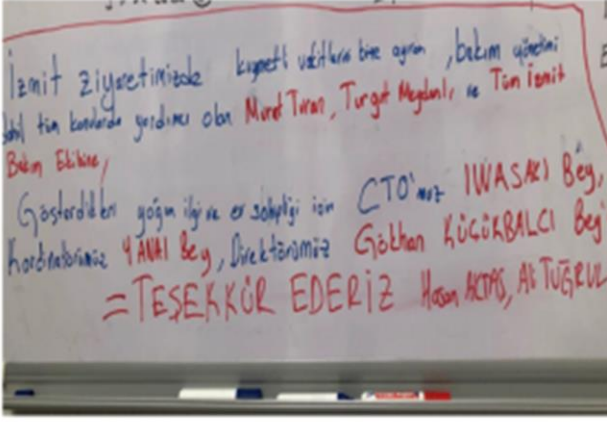 İzmit ziyaretimizde kıymetli vakitlerini bize ayıran, bakım yönetimi
dahil tüm konularda yardımcı olan Murat Turan, Turgut Meydanlı, ve Tüm İzmit
Bakım Ekibine,
Gösterdikleri yoğun ilgi ve ev sahipliği için CTO'muz IWASAKI Bey,
Kordinatörümüz YANAI Bey, Direktörümüz Gökhan KÜÇÜKBALCI Bey
= TEŞEKKÜR EDERİZ Hasan AKTAŞ, Ali TUĞRUL